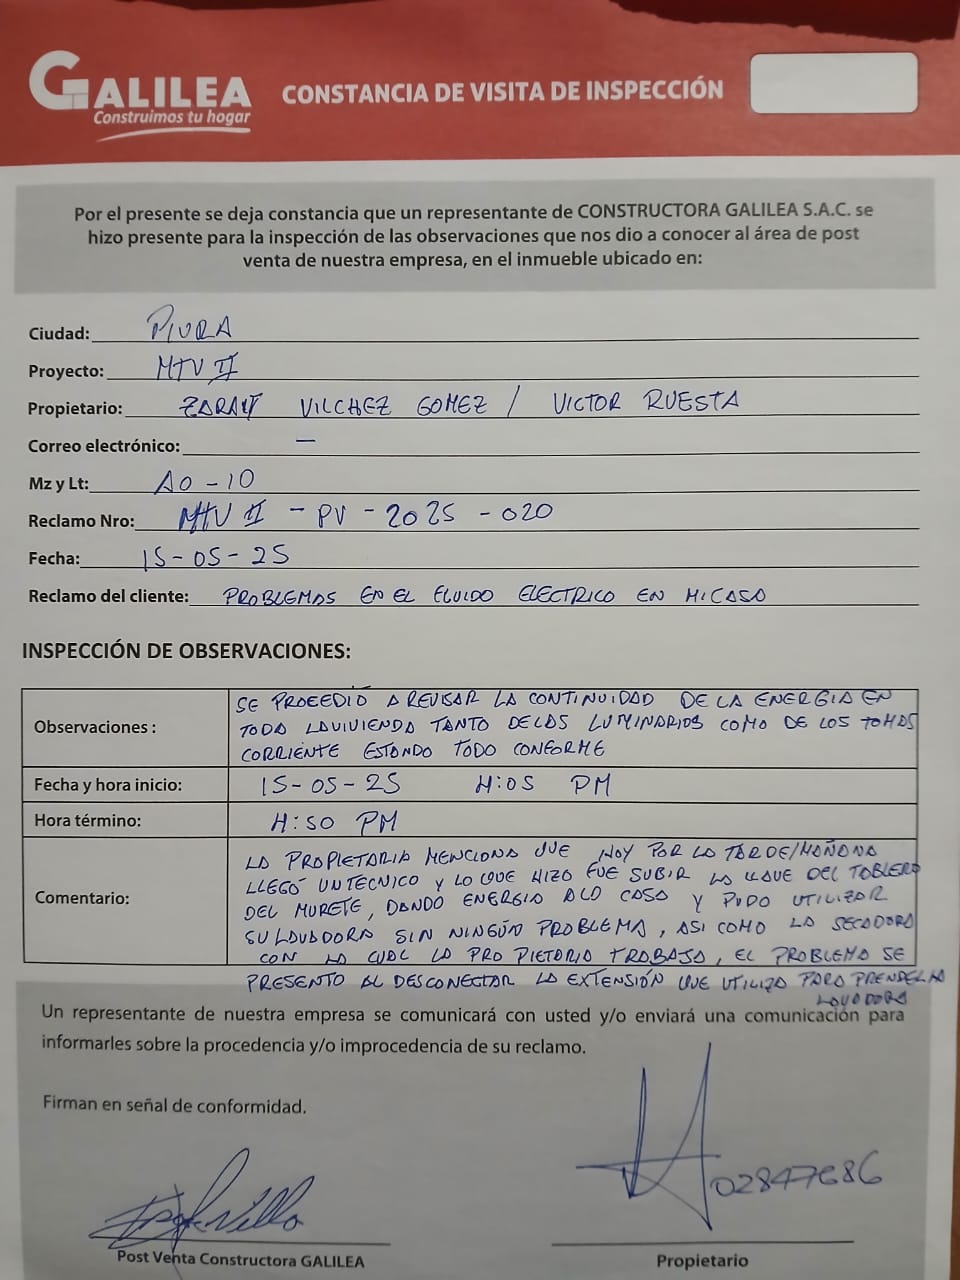 GALILEA
Construimos tu hogar
CONSTANCIA DE VISITA DE INSPECCIÓN
Por el presente se deja constancia que un representante de CONSTRUCTORA GALILEA S.A.C. se
hizo presente para la inspección de las observaciones que nos dio a conocer al área de post
venta de nuestra empresa, en el inmueble ubicado en:
Ciudad: PIURA
Proyecto: MTV II
Propietario: VILCHEZ GOMEZ / VICTOR RUESTA
Correo electrónico: —
Mz y Lt: AO - 10
Reclamo Nro: MTV II - PV - 2025 - 020
Fecha: 15-05-25
Reclamo del cliente: PROBLEMAS EN EL FLUIDO ELECTRICO EN MI CASA
INSPECCIÓN DE OBSERVACIONES:
Observaciones : SE PROEEDIÓ A REVISAR LA CONTINUIDAD DE LA ENERGIA EN
TODA LA VIVIENDA TANTO DE LAS LUMINARIOS COMO DE LOS TOMAS
CORRIENTE ESTANDO TODO CONFORME
Fecha y hora inicio: 15-05-25 4:05 PM
Hora término: 4:50 PM
Comentario: LA PROPIETARIA MENCIONA QUE HOY POR LA TARDE/MAÑANA
LLEGÓ UN TECNICO Y LO QUE HIZO FUE SUBIR LA LLAVE DEL TABLERO
DEL MURETE, DANDO ENERGIA A LA CASA Y PUDO UTILIZAR
SU LAVADORA SIN NINGÚN PROBLEMA, ASI COMO LA SECADORA
CON LA CUAL LA PROPIETARIA TRABAJA, EL PROBLEMA SE
PRESENTO AL DESCONECTAR LA EXTENSIÓN QUE UTILIZA PARA PRENDER LA
LAVADORA
Un representante de nuestra empresa se comunicará con usted y/o enviará una comunicación para
informarles sobre la procedencia y/o improcedencia de su reclamo.
Firman en señal de conformidad.
02847686
Post Venta Constructora GALILEA
Propietario